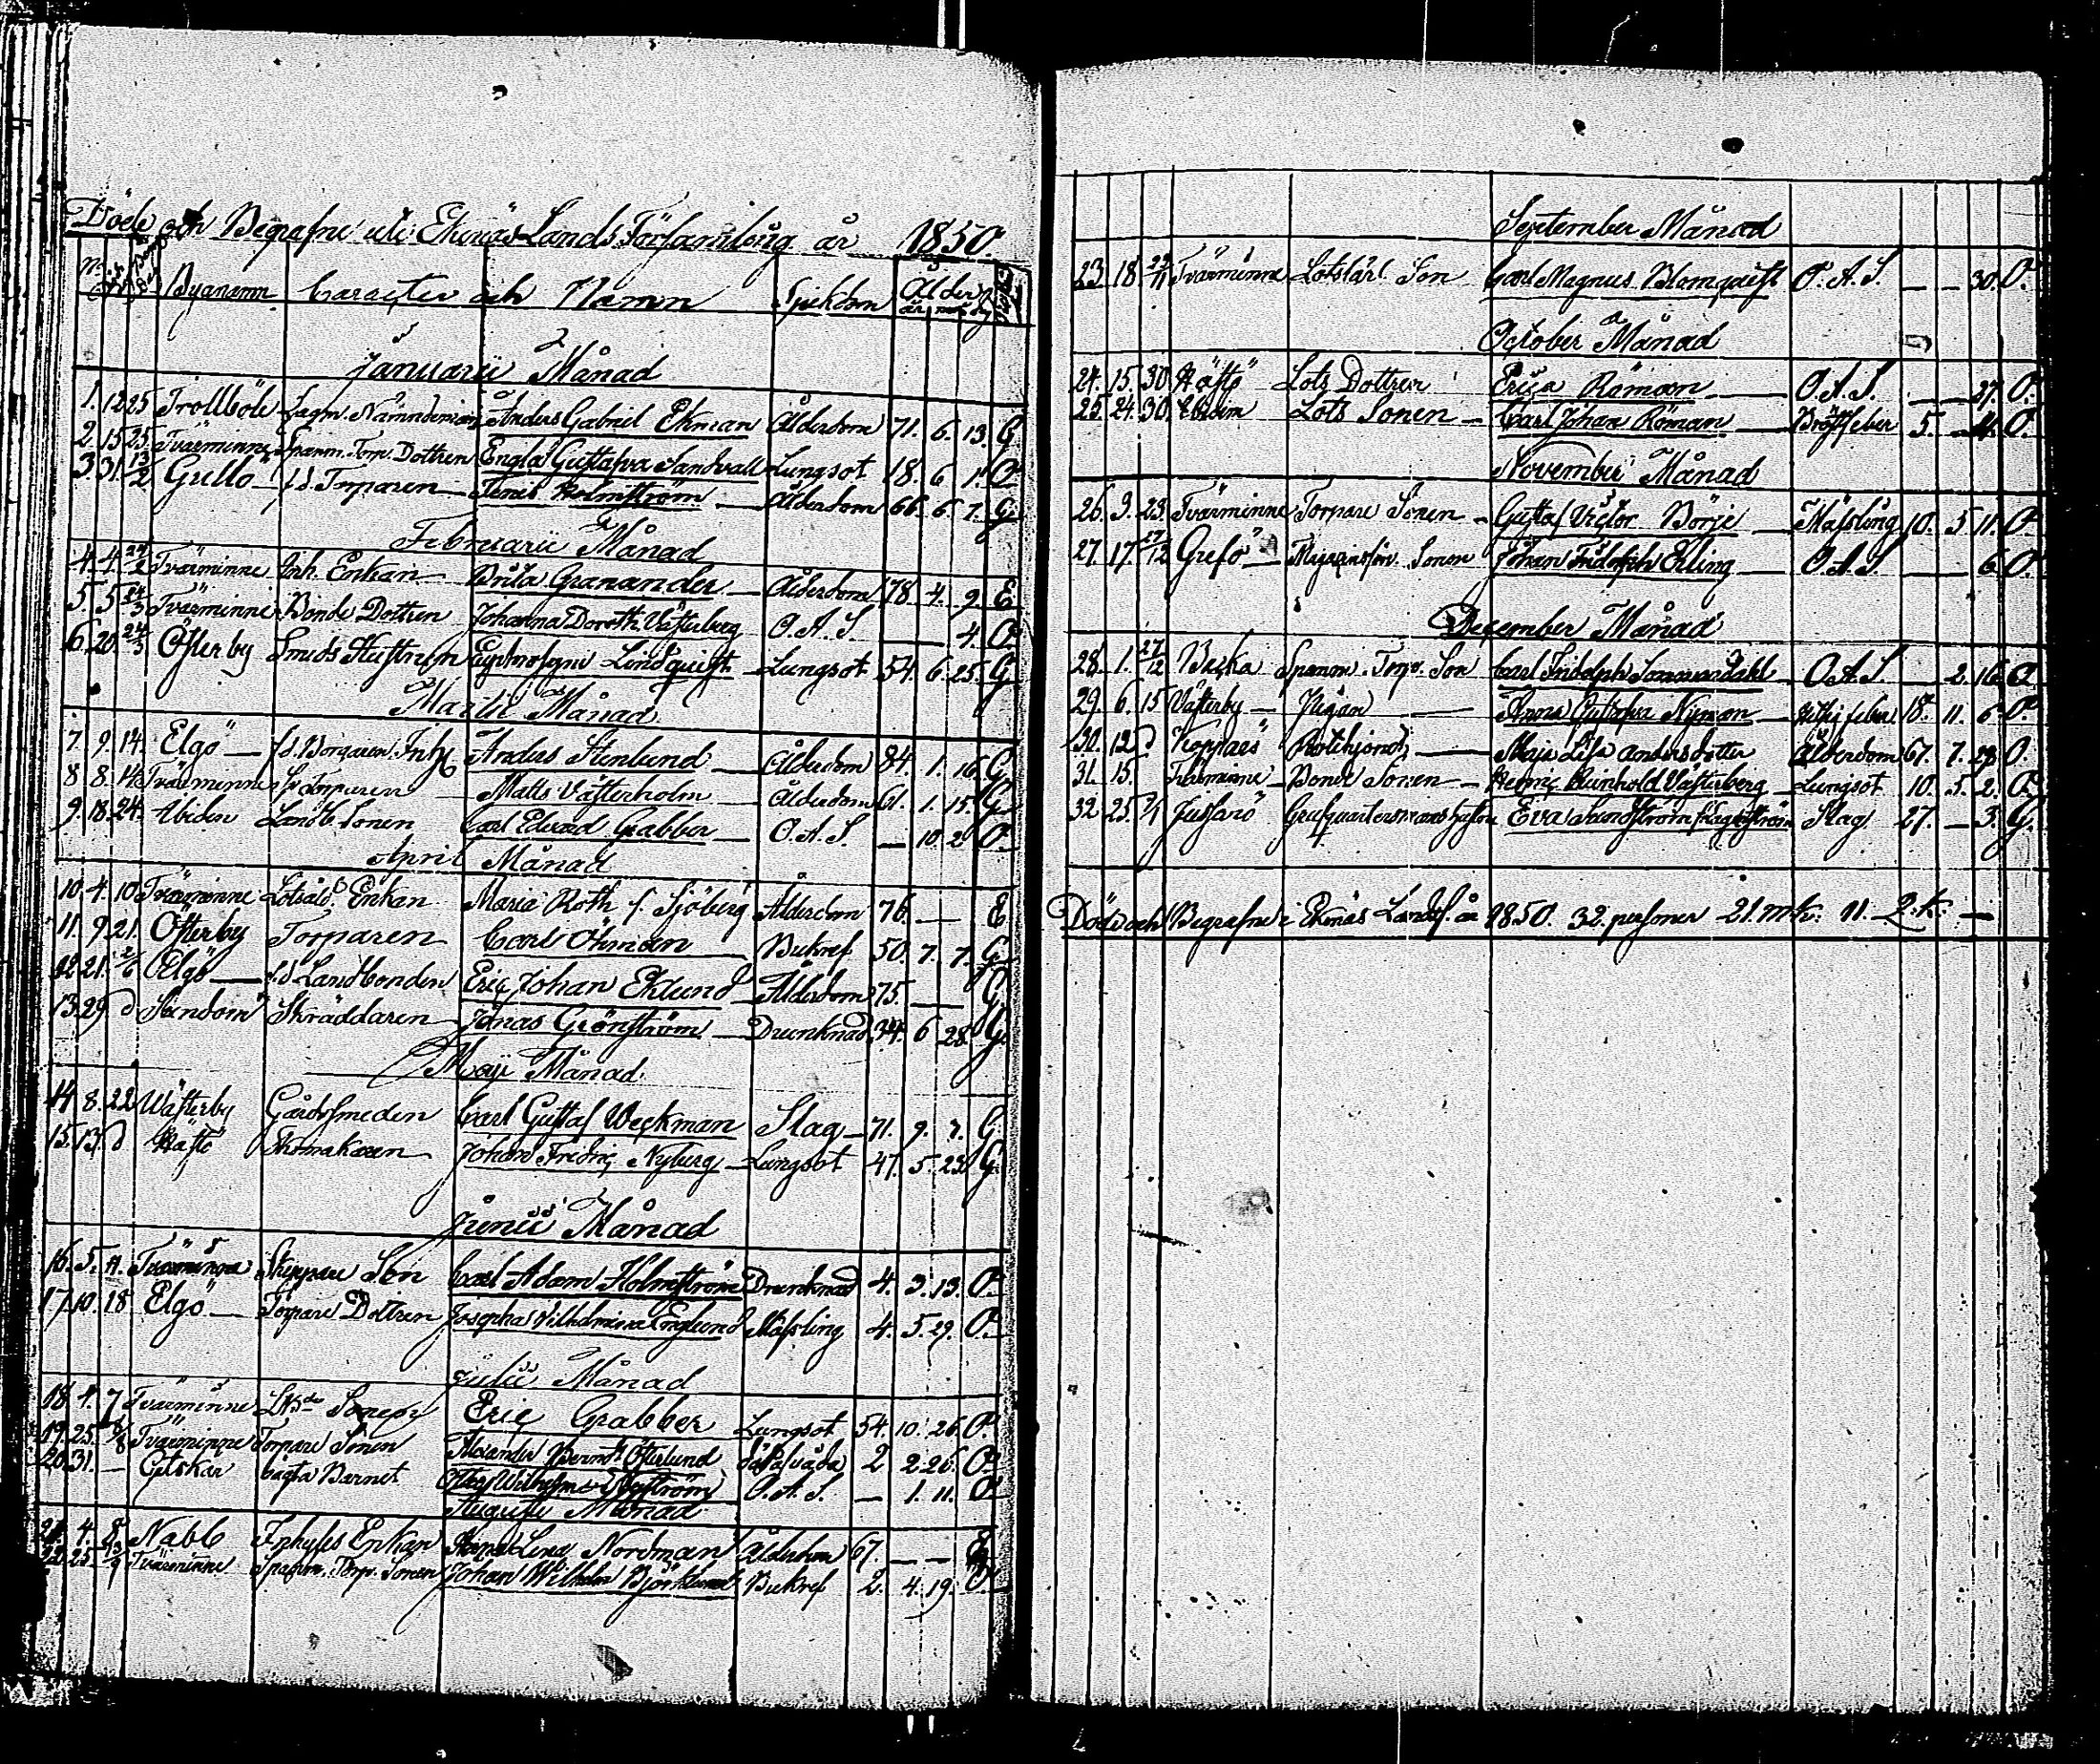 Döde och Begrafne uti Ekenäs Lands Församling år 1850.
Byanamn Caracter och Namn Sjukdom Ålder
Januarii Månad
1. 12 25 Trollböle Lagm. Nämndeman Anders Gabriel Ekman Ålderdom 71. 6. 13. G
2. 15 25 Tvärminne Spanm. Torp. Dottren Engla Gustafva Sandvall Lungsot 18. 6 1. O
3. 31. 13/2 Gullö f.d. Torparen Holmström Ålderdom 66. 6. 7. G
Februarii Månad
4. 4. 24/2 Tvärminne Inh. Enkan Brita Granander Ålderdom 78. 4. 9. E
5. 5 24/3 Tvärminne Bonde Dottren Johanna Doroth. Västerberg O.A.S 4. O.
6. 20. 24/3 Österby Smeds Hustrun Euphrosyne Lindquist Lungsot 54. 6. 25. G
Martii Månad
7. 9. 14. Elgö f.d. Borgaren. Inhys Anders Stenlund Ålderdom 84. 1. 16. G
8. 8. 14 Tvärminne f.d. Torparen Matts Västerholm Ålderdom 61. 1. 15. G
9. 18. 24. Landb. Sonen Carl Edvard Grabber O.A.S. 10. 2 O
April Månad
10. 4. 10 Tvärminne Lotsåld. Enkan Maria Roth f. Sjöberg Ålderdom 76. E
11. 9. 21. Österby Torparen Carl Öhman Bukref 50. 7. 7. G
12 21. 2/6 Elgö f.d. Landbonden Eric Johan Eklund Ålderdom 75. G
13. 29. d Skräddaren Jonas Grönström Drunknad 34. 6 28. G.
Maji Månad.
14 8. 22 Wästerby Gårdssmeden Carl Gustaf Weckman Slag 71. 9. 7. G
15. 13. d Hästö Skomakaren Johan Fredric Nyberg Lungsot 47. 5. 23. G
Junii Månad
16. 5. 11. Tvärminne Skeppare Son Carl Adam Holmström Drunknad 4. 3. 13. O.
17. 10. 18 Elgö Torpare Dottren Josepha Vilhelmina Englund Mässling 4. 5. 29. O.
Julii Månad
18. 4. 7 Tvärminne Sonen Eric Grabber Lungsot 54. 10. 26. O.
19. 25 Tvärminne Torpare Sonen Alexander Bernd. Österlund 2 2. 26. O
20. 31. Barnet O.A.S. 1. 11. O
Augusti Månad
21. 4. 8 Nabb Inhyses Enkan Lena Nordman Ålderdom 67. E
22 25 13/9 Tvärminne Spanm. Torp. Sonen Johan Wilhelm Björklund Bukref 2. 4. 19. O
September Månad
23 18 22/11 Tvärminne Lotslärl. Son Carl Magnus Blomqvist O.A.S. 30. O.
October Månad
24. 15. 30 Hästö Lots Dottren Erica Röman O.A.S. 27. O.
25. 24. 30. Lots Sonen Carl Johan Röman Bröstfeber 5. 4. O.
November Månad
26. 3. 23. Tvärminne Torpare Sonen Gustaf Victor Börje Mässling 10. 5 11. O
27. 17. 27/12 Grefsö Sonen Johan Fridolph Ekling O.A.S 6. O
December Månad
28. 1. 27/12 Backa Spanm. Torp. Son Carl Fridolph O.A.S 2. 16. O
29. 6. 15 Västerby Pigan Anna Gustafva Nyman feber 18. 11. 6. O.
30. 12 d Koppnäs Maja Lisa Andersdotter Ålderdom 67. 7. 28 O.
31. 15. Tvärminne Bonde Sonen Henric Reinhold Västerberg Lungsot 10. 5. 2. O
32 25. Jussarö Eva Sundström f. Slag 27. 3. G.
Döde och Begrafne i Ekenäs Landsf. år 1850. 32. personer 21. m.k. 11. Q.k.